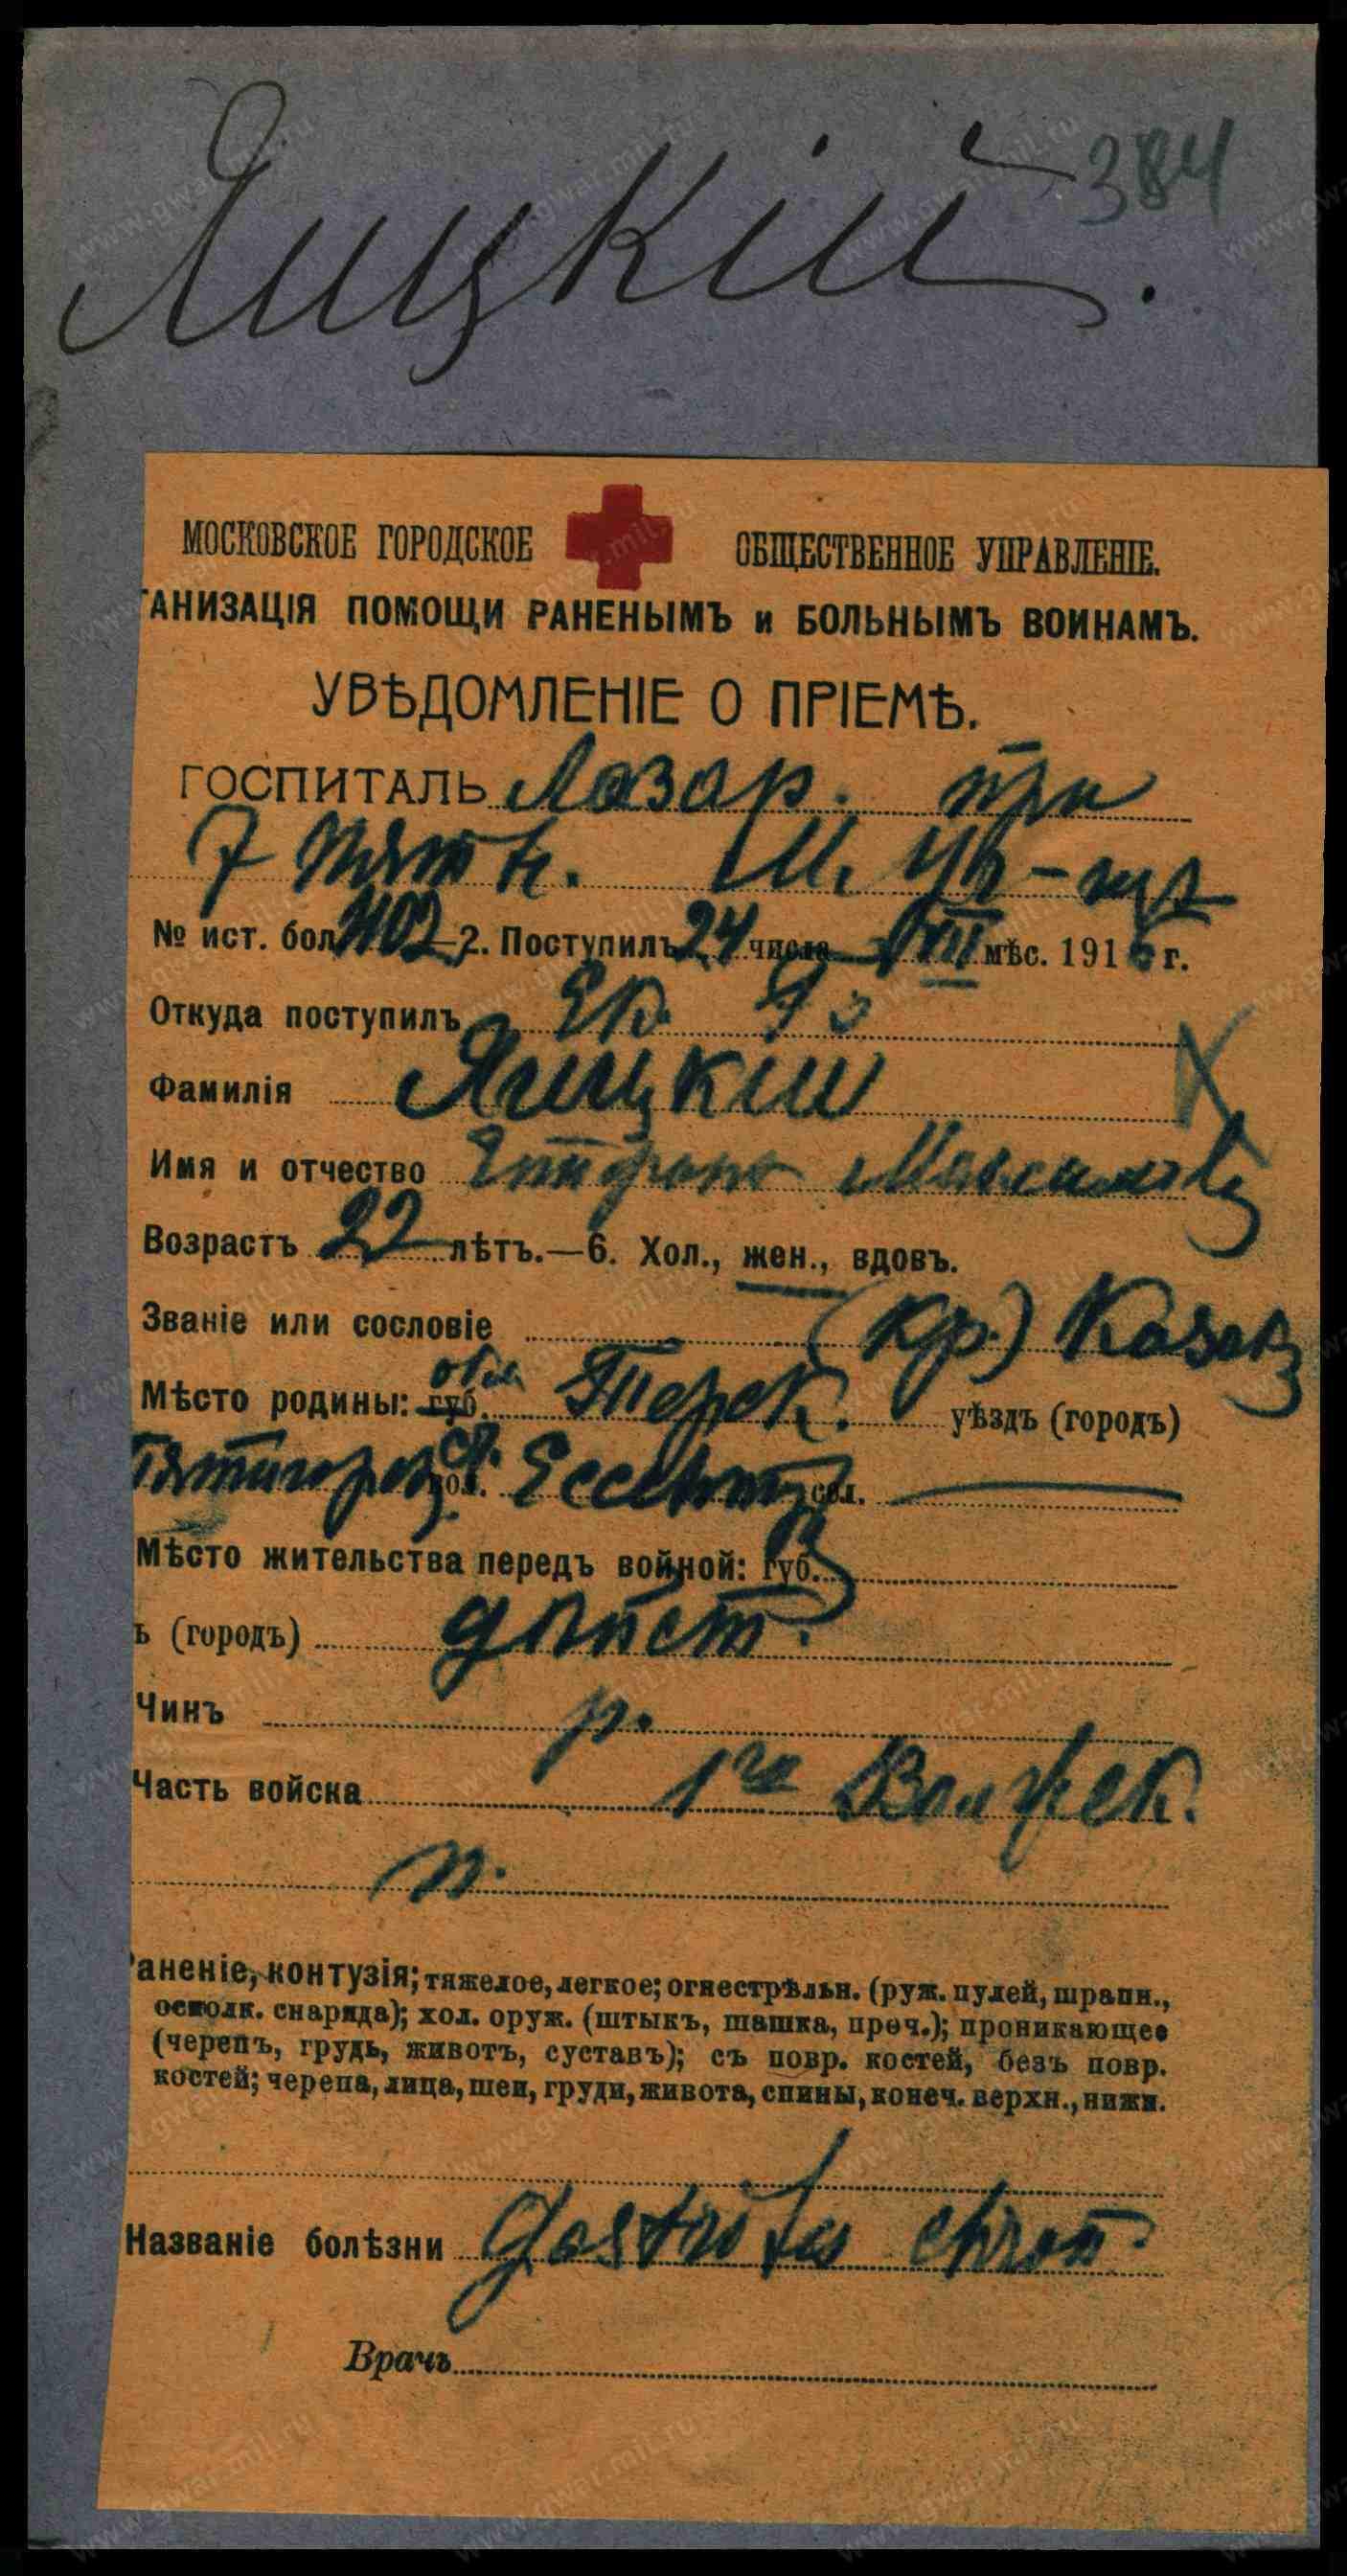 Яицкій.
384
МОСКОВСКОЕ ГОРОДСКОЕ ОБЩЕСТВЕННОЕ УПРАВЛЕНІЕ.
ГАНИЗАЦІЯ ПОМОЩИ РАНЕНЫМЪ и БОЛЬНЫМЪ ВОИНАМЪ.
УВѢДОМЛЕНІЕ О ПРІЕМѢ.
ГОСПИТАЛЬ Лазар. при
7 Пятн.
№ ист. бол. 2. Поступилъ 24 числа VII мѣс. 1916 г.
Откуда поступилъ
Фамилія Яицкій
Имя и отчество Епифанъ Максимовъ
Возрастъ 22 лѣтъ.—6. Хол., жен., вдовъ.
Званіе или сословіе (кр.) Казакъ
Мѣсто родины: губ. обл. Терск. уѣздъ (городъ)
вол. ст. Ессент сел.
Мѣсто жительства передъ войной: губ.
ъ (городъ)
Чинъ р.
Часть войска 1го Волжск.
п.
аненіе, контузія; тяжелое, легкое; огнестрѣльн. (руж. пулей, шрапн.,
осколк. снаряда); хол. оруж. (штыкъ, шашка, проч.); проникающее
(черепъ, грудь, животъ, суставъ); съ повр. костей, безъ повр.
костей; черепа, лица, шеи, груди, живота, спины, конеч. верхн., нижн.
Названіе болѣзни Gastritis chron.
Врачъ